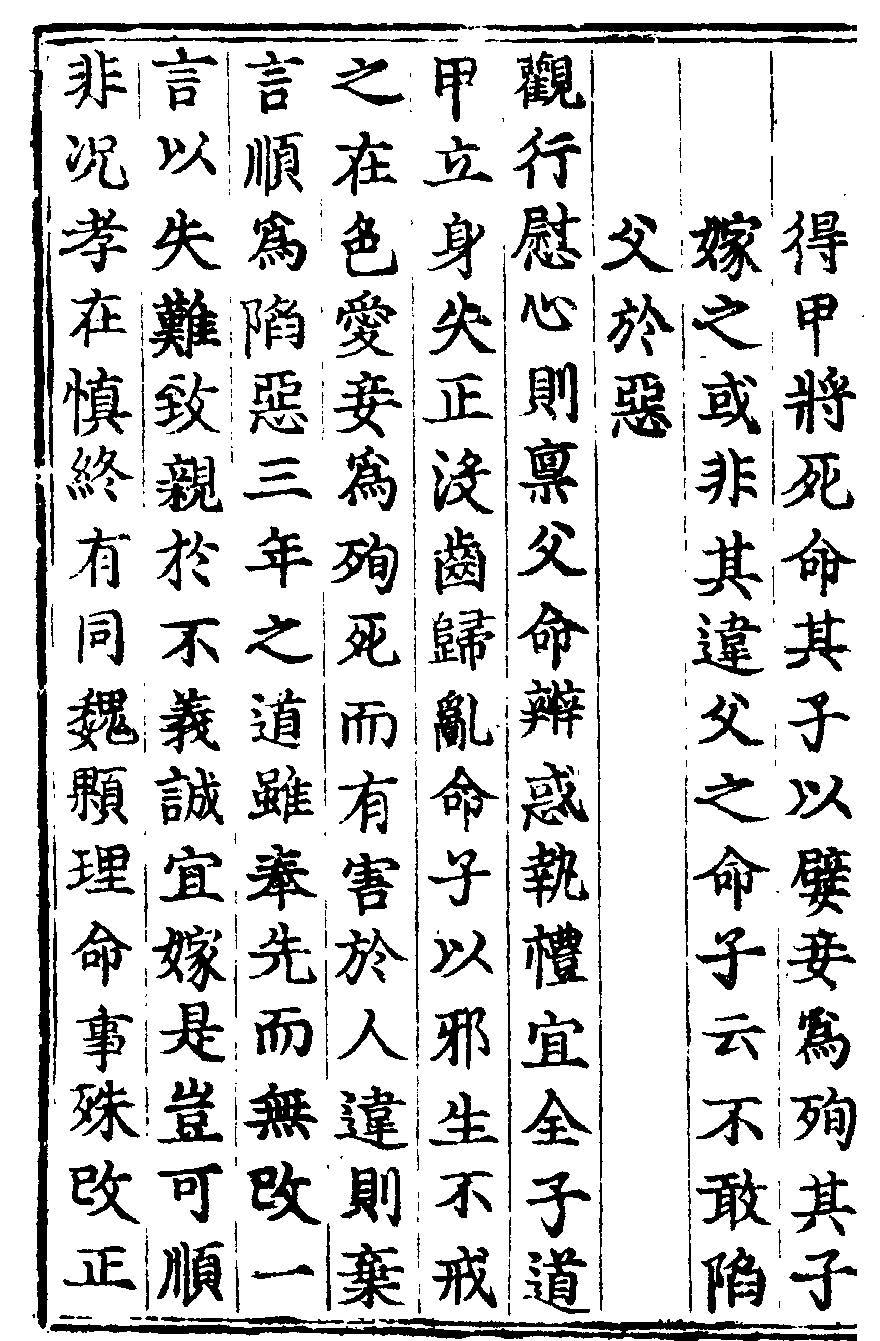 得甲將死命其子以嬖妾爲殉其子
嫁之或非其違父之命子云不敢陷
父於惡
觀行慰心則禀父命辨惑執禮宜全子道
甲立身失正沒齒歸亂命子以邪生不戒
之在色愛妾爲殉死而有害於人違則棄
言順爲陷惡三年之道雖奉先而無改一
言以失難致親於不義誠宜嫁是豈可順
非况孝在慎終有同魏顆理命事殊改正